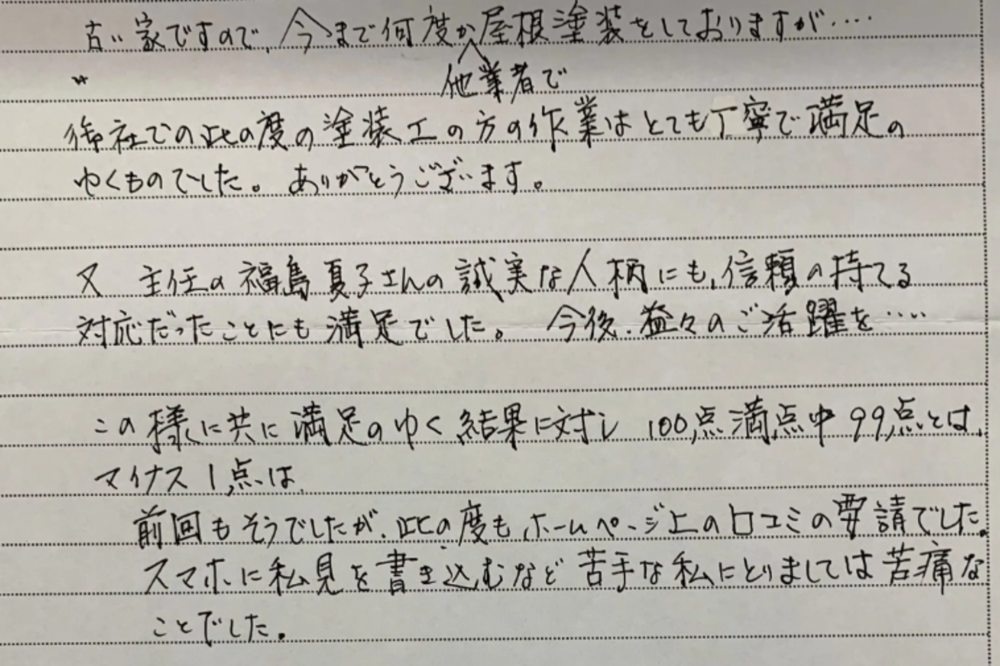 古い家ですので、今まで何度か屋根塗装をしておりますが‥‥
他業者で
御社での此の度の塗装工の方の作業はとても丁寧で満足の
ゆくものでした。ありがとうございます。
又 主任の福島夏子さんの誠実な人柄にも、信頼の持てる
対応だったことにも満足でした。 今後、益々のご活躍を‥‥
この様に共に満足のゆく結果に対し 100点満点中99点とは、
マイナス1点は、
前回もそうでしたが、此の度も、ホームページ上の口コミの要請でした。
スマホに私見を書き込むなど苦手な私にとりましては苦痛な
ことでした。